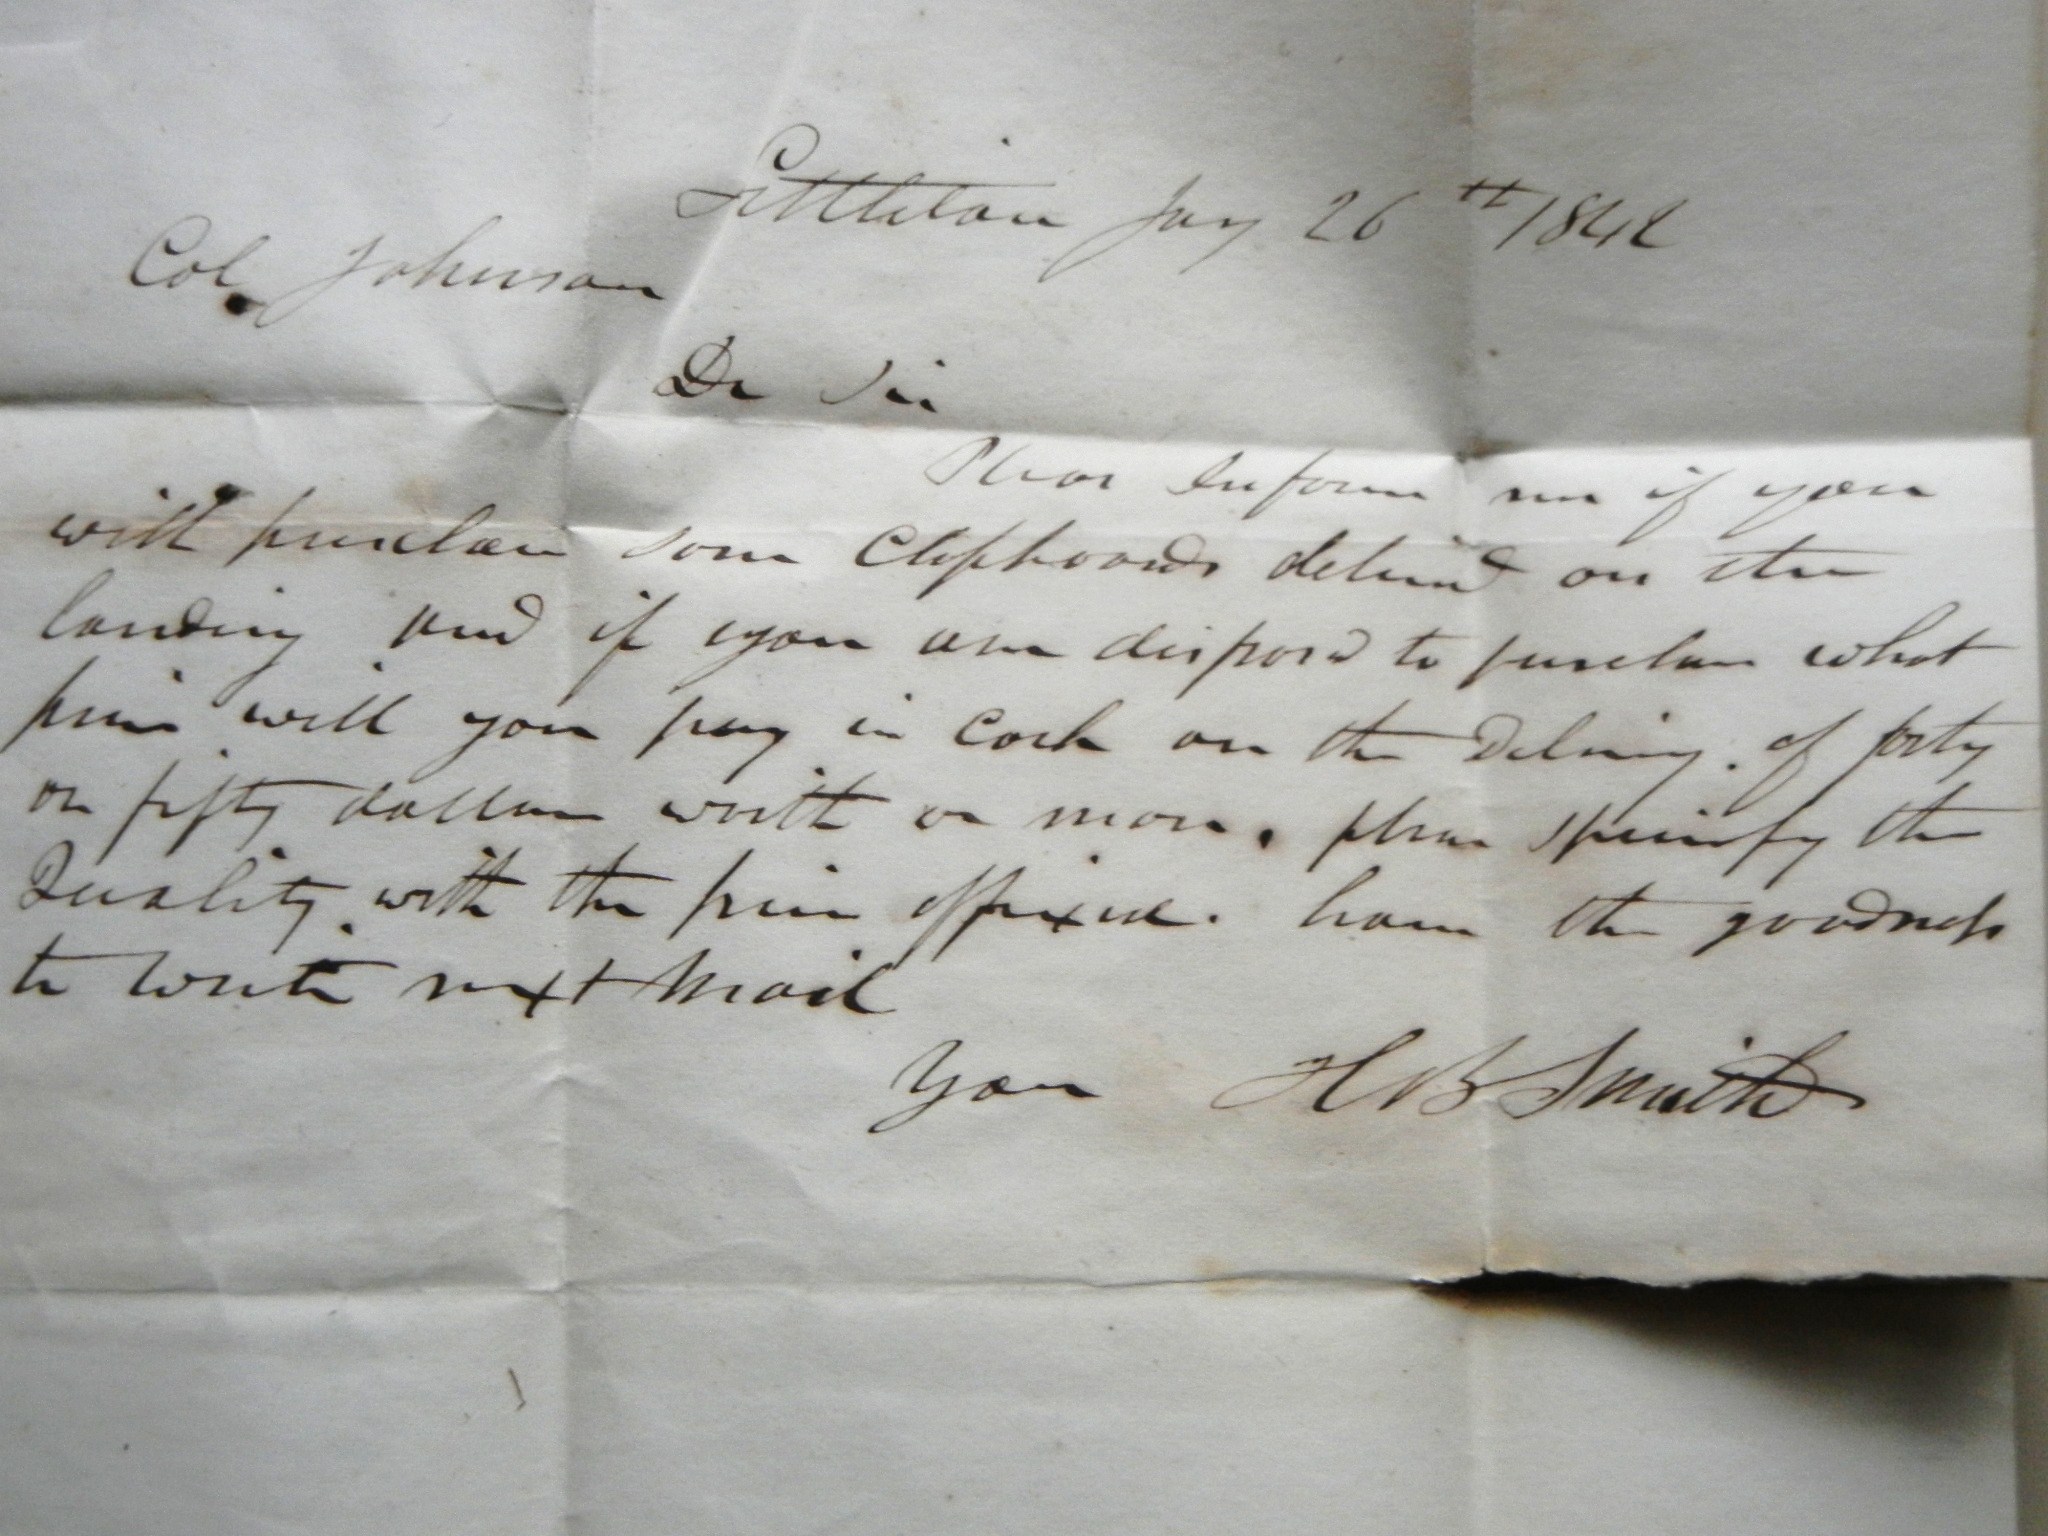 Littleton Jany 26th 1842
Col Johnson
Dr Sir
Pleas Inform me if you
will purchase some Clapboards deliverd on the
landing and if you are disposed to purchase what
price will you pay in Cash on the Delivery of forty
or fifty dollars worth or more, please specify the
Quality with the price affixed. have the goodness
to write next Mail
Your H B Smith